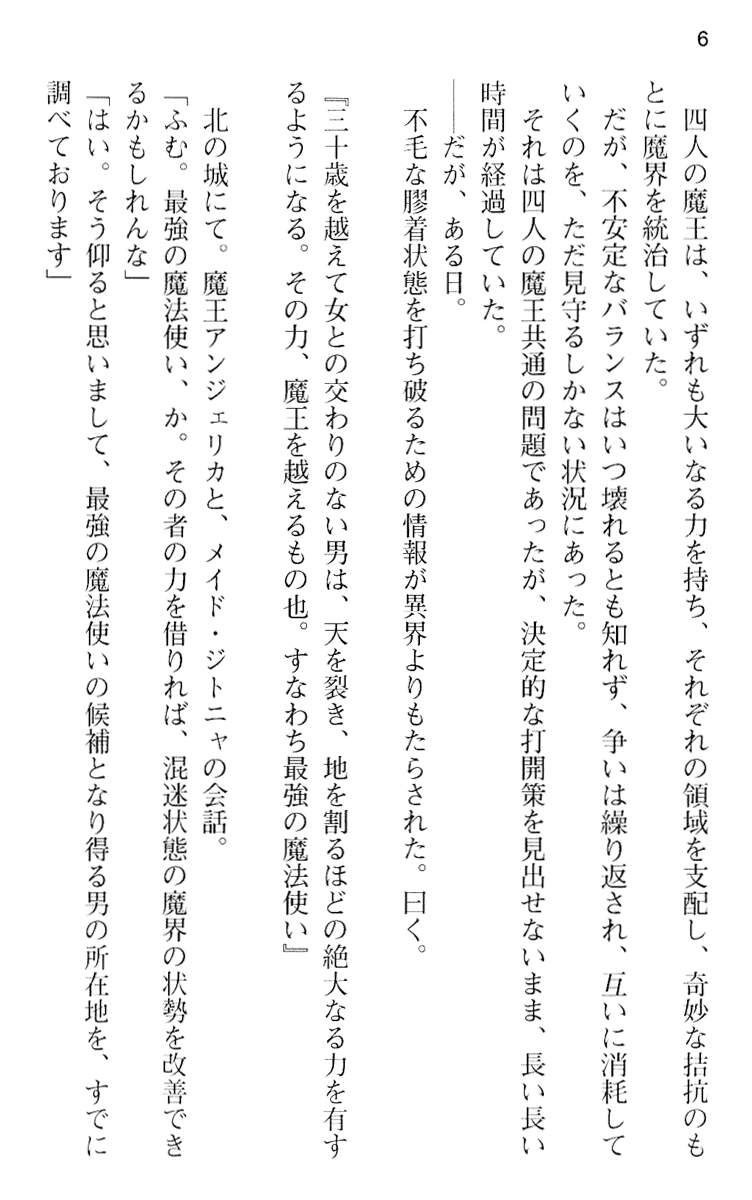 6
四人の魔王は、いずれも大いなる力を持ち、それぞれの領域を支配し、奇妙な拮抗のも
とに魔界を統治していた。
だが、不安定なバランスはいつ壊れるとも知れず、争いは繰り返され、互いに消耗して
いくのを、ただ見守るしかない状況にあった。
それは四人の魔王共通の問題であったが、決定的な打開策を見出せないまま、長い長い
時間が経過していた。
――だが、ある日。
不毛な膠着状態を打ち破るための情報が異界よりもたらされた。曰く。
『三十歳を越えて女との交わりのない男は、天を裂き、地を割るほどの絶大なる力を有す
るようになる。その力、魔王を越えるもの也。すなわち最強の魔法使い』
北の城にて。魔王アンジェリカと、メイド・ジトニャの会話。
「ふむ。最強の魔法使い、か。その者の力を借りれば、混迷状態の魔界の状勢を改善でき
るかもしれんな」
「はい。そう仰ると思いまして、最強の魔法使いの候補となり得る男の所在地を、すでに
調べております」